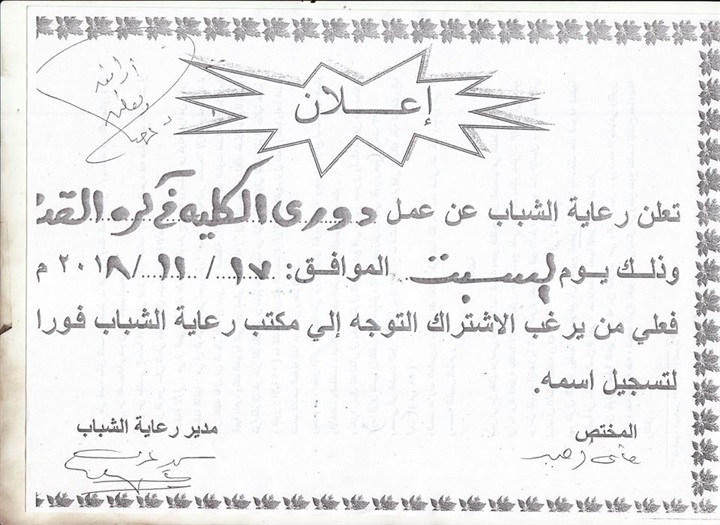 إعـــلان
تعلن رعاية الشباب عن عمل دورى الكليه في كره القد
وذلك يوم السبت الموافق: ١٧/ ١١/ ٢٠١٨ م
فعلي من يرغب الاشتراك التوجه إلي مكتب رعاية الشباب فورا
لتسجيل اسمه.
المختص
مدير رعاية الشباب